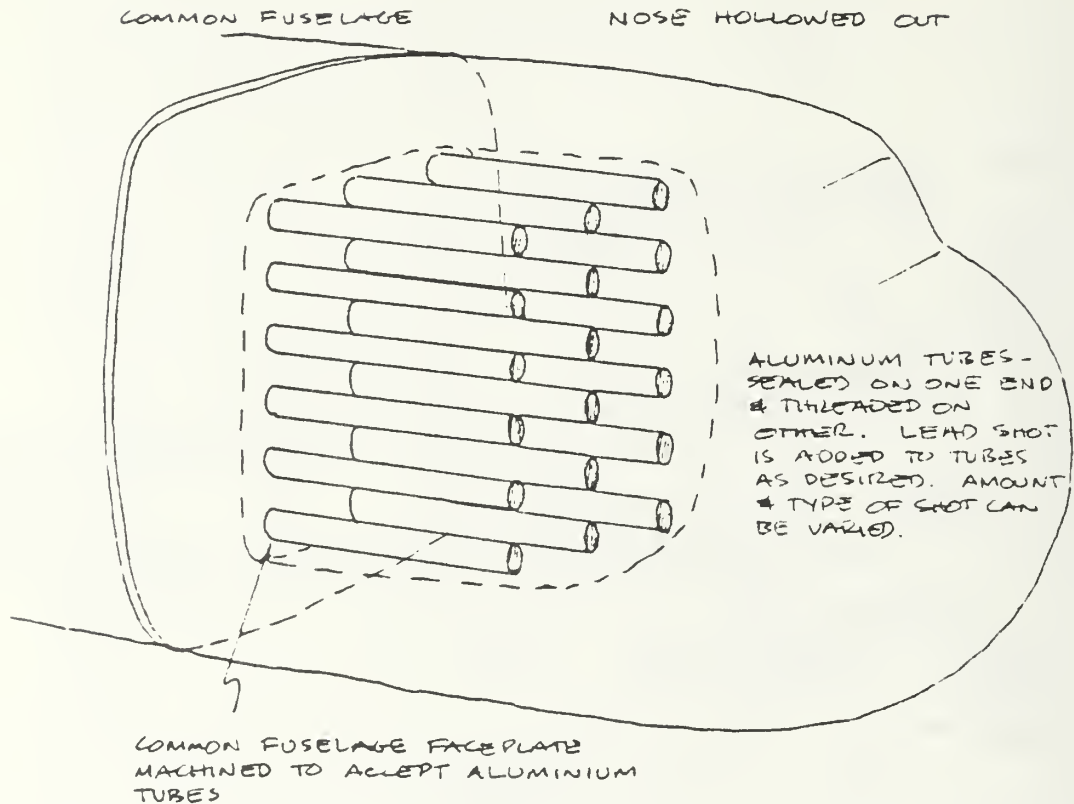 COMMON FUSELAGE
NOSE HOLLOWED OUT
ALUMINUM TUBES-
SEALED ON ONE END
& THREADED ON
OTHER. LEAD SHOT
IS ADDED TO TUBES
AS DESIRED. AMOUNT
& TYPE OF SHOT CAN
BE VARIED.
COMMON FUSELAGE FACEPLATE
MACHINED TO ACCEPT ALUMINIUM
TUBES